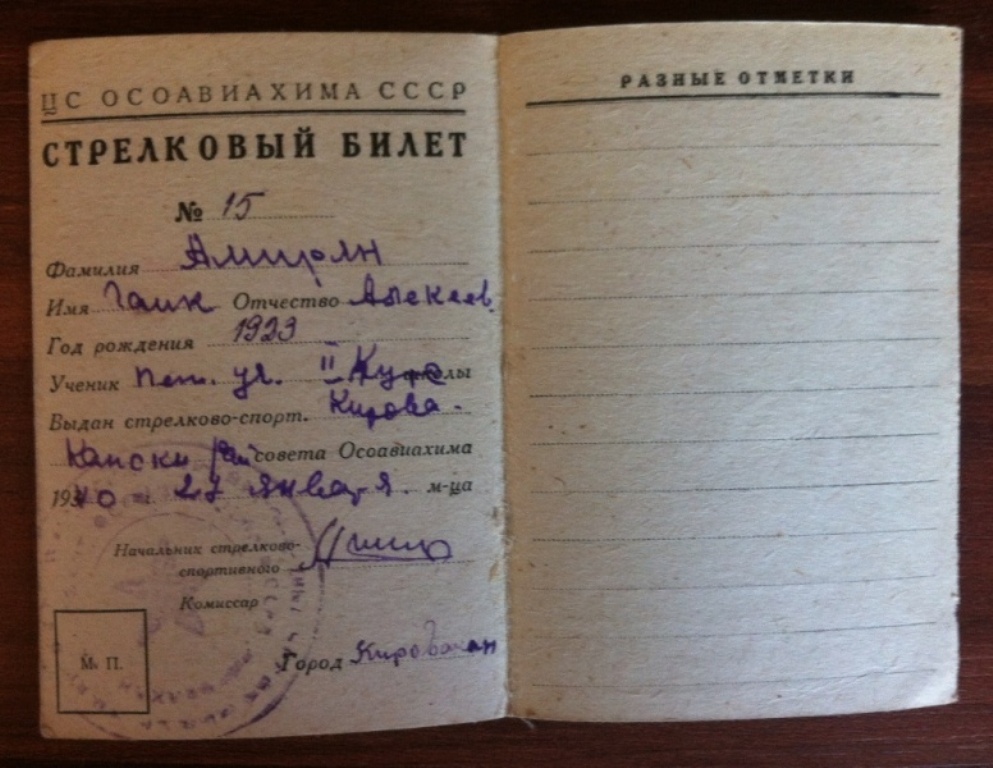 ЦС ОСОАВИАХИМА СССР
СТРЕЛКОВЫЙ БИЛЕТ
№ 15
Фамилия Амирян
Имя Гаик Отчество Алексеев.
Год рождения 1923
Ученик Пед. уч. II Курс школы
Выдан стрелково-спорт. Кирова-
канский рай совета Осоавиахима
1940 г. 27 января. м-ца
Начальник стрелково-
спортивного
Комиссар
М. П.
Город Кировакан
РАЗНЫЕ ОТМЕТКИ